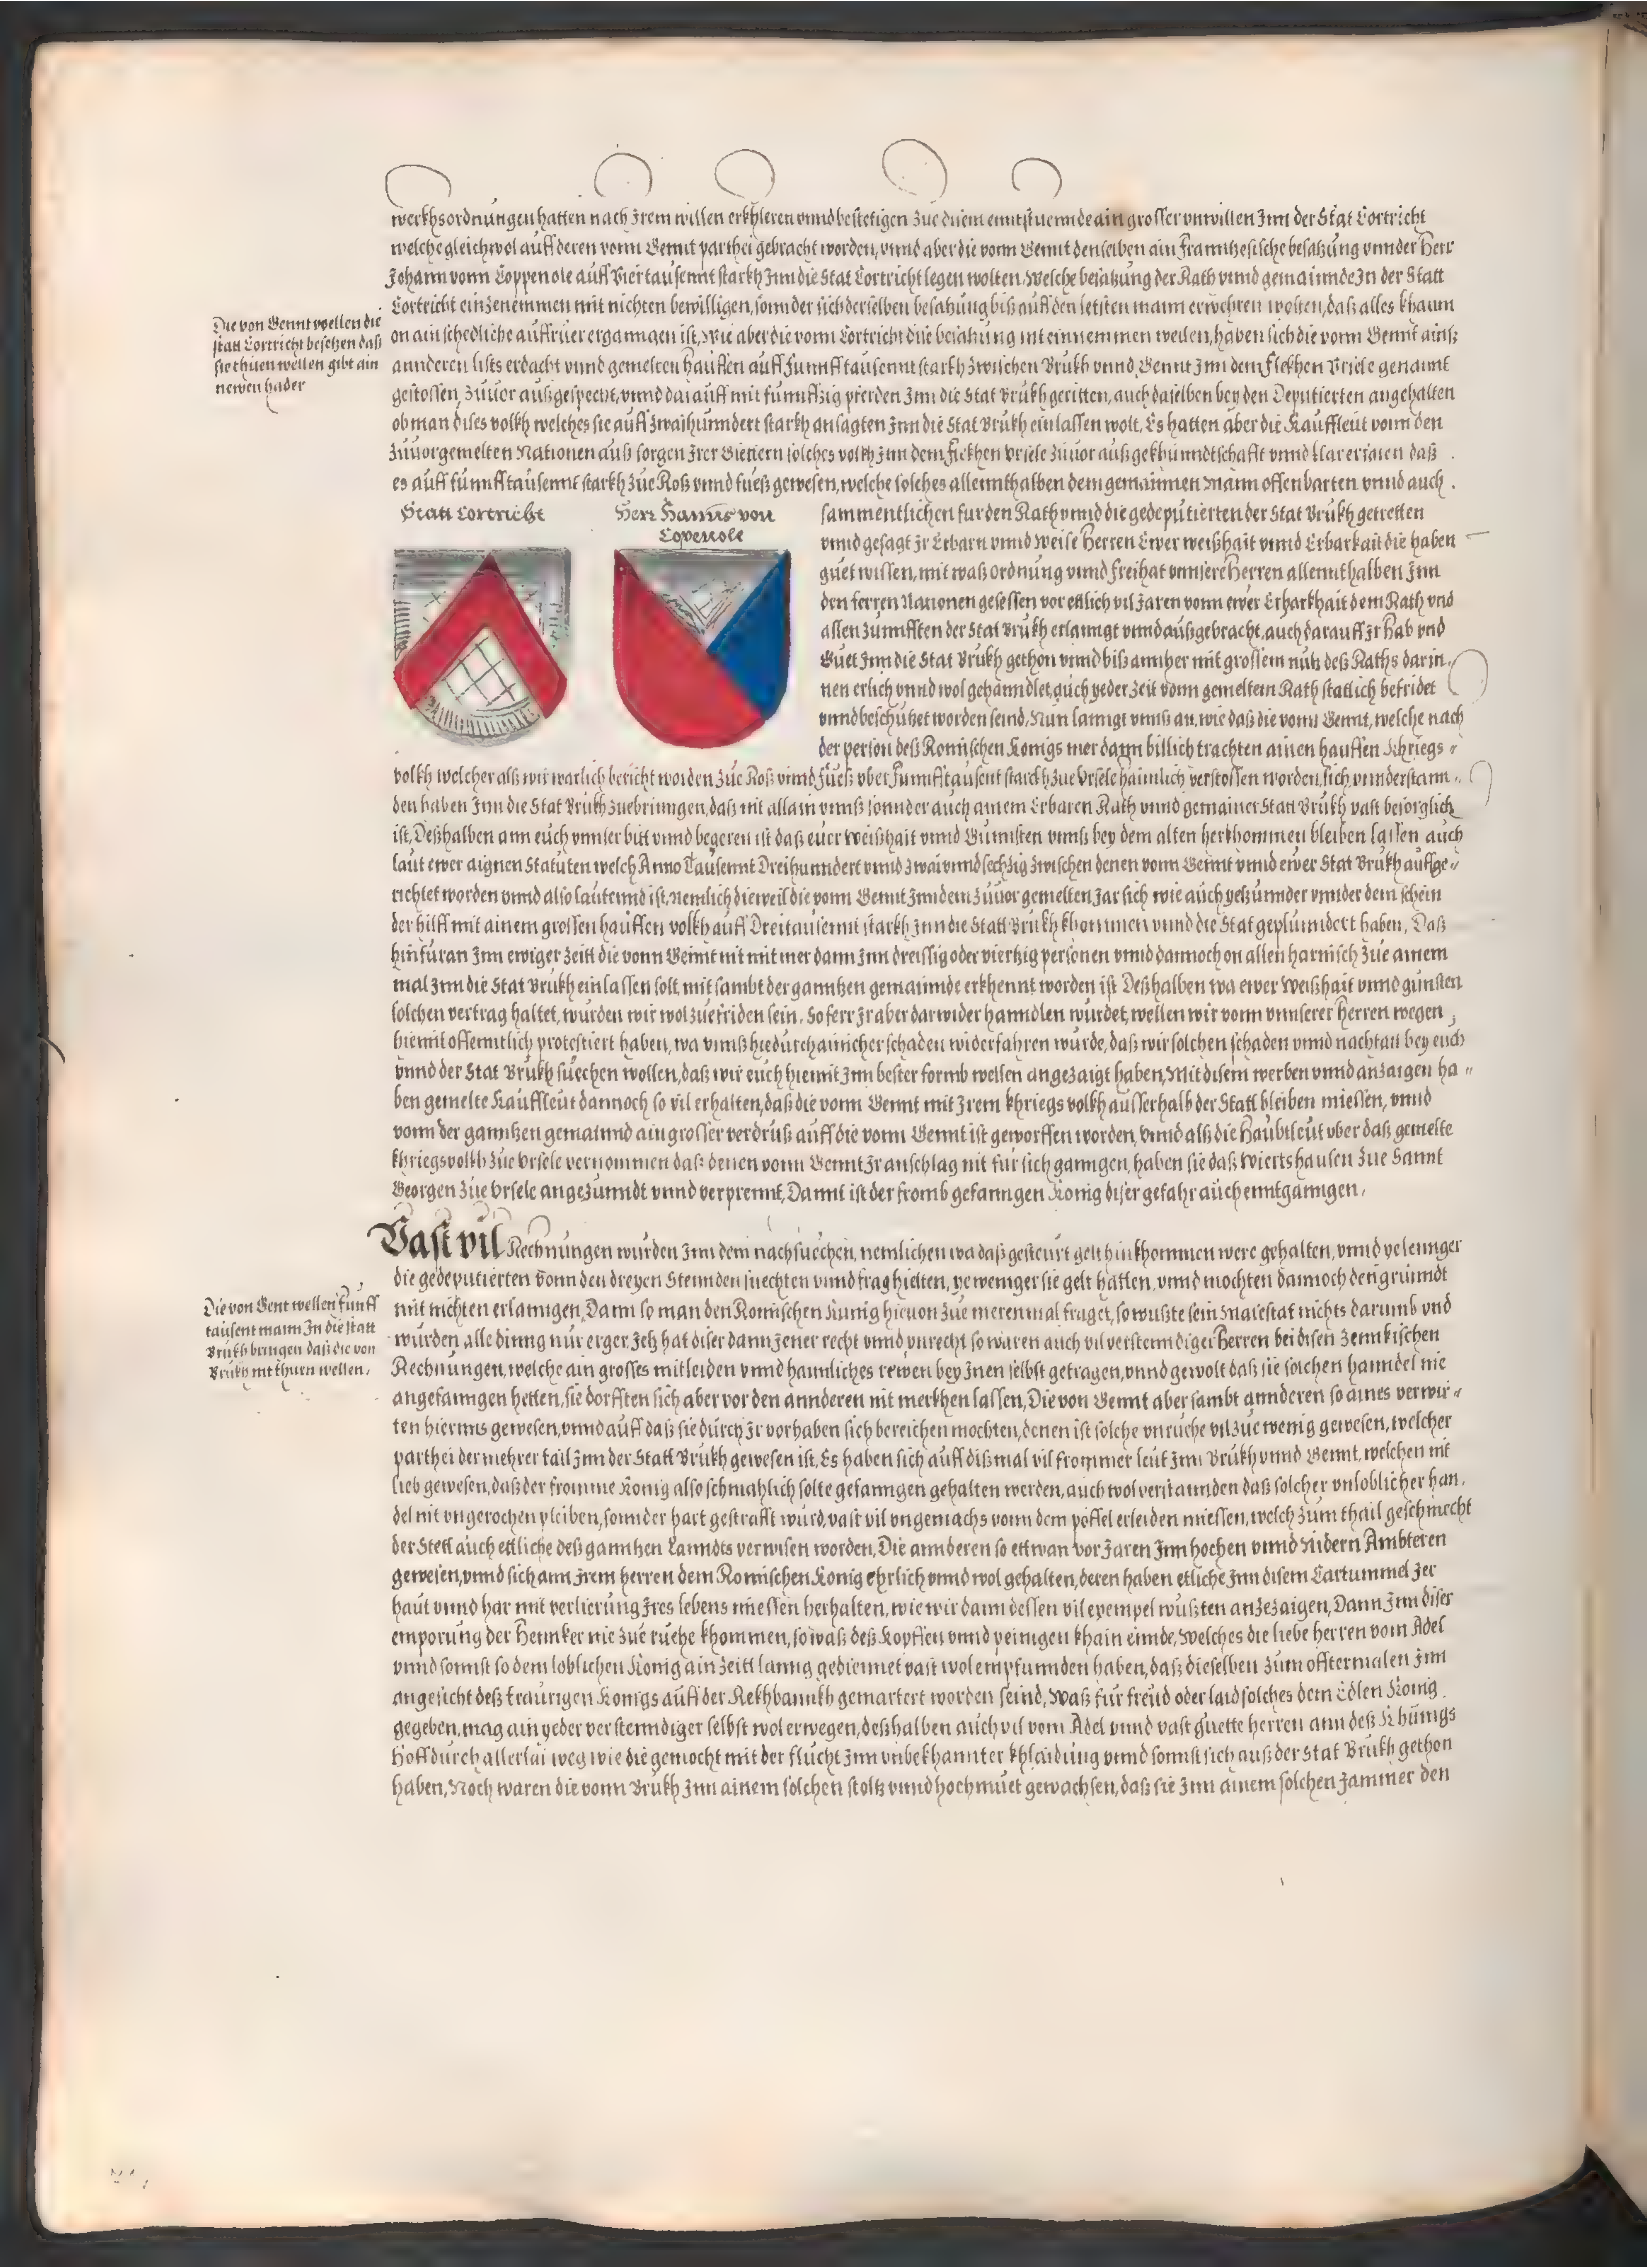 werkhsordnungen hatten nach Irem willen erkhleren vnnd bestetigen Zue ain grosser vnwillen Inn der Stat Cortricht
welche gleichwol auff deren vonn Gennt parthei gebracht worden, vnnd aber die vonn Gennt denselben ain Frannhesische besatzung vnnder Herr
Johann vonn Coppenole auff Viertausennt starkh Inn die Stat Cortricht legen wolten, Welche besatzung der Rath vnnd gemainnde In der Statt
Cortricht einzenemmen mit nichten bewilligen, sonnder sich derselben besatzung biß auff den letsten mann erwehren wolten, daß alles khaum
on ain schedliche auffruer erganngen ist, Wie aber die vonn Cortricht die besatzung nit einnemmen wellen, haben sich die vonn Gennt ainß
Die von Gennt wellen die
statt Cortricht besetzen daß
sie thuen wellen gibt ain
newen hader
annderen lists erdacht vnnd gemelten hauffen auff funnfftausennt starkh zwischen Brukh vnnd Gennt Inn dem Flekhen Vrsele genannt
gestossen, Zuuor außgespecht, vnnd darauff mit funnffzig pferden Inn die Stat Brukh geritten, auch daselben bey den Deputierten angehalten
ob man dises volkh welches sie auff zwaihunndert starkh ansagten Inn die Stat Brukh einlassen wolt, Es hatten aber die Kauffleut vonn den
Zuuorgemelten Nationen auß sorgen Irer Gietern solches volkh Inn dem Flekhen Vrsele Zuuor außgekhunndtschafft vnnd klar erfaren daß
es auff funnfftausennt starkh Zue Roß vnnd fueß gewesen, welche solches allennthalben dem gemainnen Mann offenbarten vnnd auch
Statt Cortricht
Herr Hanns von
Copenole
sammentlichen fur den Rath vnnd die gedeputierten der Stat Brukh getretten
vnnd gesagt Ir Erbarn vnnd Weise Herren Ewer weißhait vnnd Erbarkait die haben
guet wissen, mit waß ordnung vnnd Freihat vnnsere Herren allennthalben Inn
den ferren Nationen gesessen vor ettlich vil Jaren vonn ewer Erbarkhait dem Rath vnd
allen Zunnfften der Stat Brukh erlanngt vnnd außgebracht, auch darauff Ir Hab vnd
Guet Inn die Stat Brukh gethon vnnd biß annher mit grossem nutz deß Raths darin
nen erlich vnnd wol gehanndlet, auch yeder Zeit vonn gemeltem Rath statlich befridet
vnnd beschutzet worden seind, Nun lanngt vnnß an, wie daß die vonn Gennt, welche nach
der person deß Romischen Konigs mer dann billich trachten ainen hauffen Khriegs
volkh welcher alß wir warlich bericht worden Zue Roß vnnd Fueß vber Funnfftausent starkh Zue Vrsele haimlich verstossen worden, sich vnnderstann
den haben Inn die Stat Brukh Zuebrinngen, daß nit allain vnnß sonnder auch ainem Erbaren Rath vnnd gemainer Statt Brukh vast besorglich
ist, Deßhalben ann euch vnnser bitt vnnd begeren ist daß euer weißhait vnnd Gunnsten vnnß bey dem alten herkhommen bleiben lassen auch
laut ewer aignen Statuten welch Anno Tausennt Dreihunndert vnnd zwai vnnd sechzig zwischen denen vonn Gennt vnnd ewer Stat Brukh auffge
richtet worden vnnd also lautennd ist, Nemlich dieweil die vonn Gennt Inn dem Zuuor gemelten Jar sich wie auch yetzunnder vnnder dem schein
der hilff mit ainem grossen hauffen volkh auff Dreitausennt starkh Inn die Statt Brukh khommen vnnd die Stat geplunndert haben, Daß
hinfuran Inn ewiger Zeitt die vonn Gennt nit mer dann Inn dreissig oder viertzig personen vnnd dannoch on allen harnisch Zue ainem
mal Inn die Stat Brukh einlassen solt, mit sambt der ganntzen gemainnde erkhennt worden ist Deßhalben wa ewer Weißhait vnnd gunsten
solchen vertrag haltet, wurden wir wol zuefriden sein, So ferr Ir aber darwider hanndlen wurdet, wellen wir vonn vnnserer Herren wegen
hiemit offenntlich protestiert haben, wa vnnß hiedurch ainicher schaden widerfahren wurde, daß wir solchen schaden vnnd nachtail bey euch
vnnd der Stat Brukh suechen wollen, daß wir euch hiemit Inn bester formb wellen angezaigt haben, Mit disem werben vnnd anzaigen ha
ben gemelte Kauffleut dannoch so vil erhalten, daß die vonn Gennt mit Irem khriegs volkh ausserhalb der Statt bleiben miessen, vnnd
vonn der ganntzen gemainnd ain grosser verdruß auff die vonn Gennt ist geworffen worden, vnnd alß die Haubtleut vber daß gemelte
khriegsvolkh Zue Vrsele vernommen daß denen vonn Gennt Ir anschlag nit fur sich ganngen, haben sie daß Wiertshausen Zue Sannt
Georgen Zue Vrsele angezunndt vnnd verprennt, Damit ist der fromb gefanngen Konig diser gefahr auch enntganngen.
Vast vil Rechnungen wurden Inn dem nachsuechen, nemlichen wa daß gesteurt gelt hinkhommen were gehalten, vnnd ye lennger
die gedeputierten vonn den dreyen Stennden suechten vnnd frag hielten, ye weniger sie gelt hatten, vnnd mochten dannoch den grunndt
Die von Gent wellen funff
tausent mann In die statt
Brukh bringen daß die von
Brukh nit thun wellen,
mit nichten erlanngen, Dann so man den Romischen Kunig hieuon Zue merenmal fraget, so wußte sein Maiestat nichts darumb vnd
wurden alle dinng nur erger, Jetz hat diser dann jener recht vnnd vnrecht so waren auch vil verstenndiger Herren bei disen Zennkischen
Rechnungen, welche ain grosses mitleiden vnnd haimliches rewen bey Inen selbst getragen, vnnd gewolt daß sie solchen hanndel nie
angefanngen hetten, sie dorfften sich aber vor den annderen nit merkhen lassen, Die von Gennt aber sambt annderen so aines verwir
ten hierns gewesen, vnnd auff daß sie durch Ir vorhaben sich bereichen mochten, denen ist solche vnruehe vil zue wenig gewesen, welcher
parthei der mehrer tail Inn der Statt Brukh gewesen ist, Es haben sich auff dißmal vil frommer leut Inn Brukh vnnd Gennt, welchen nit
lieb gewesen, daß der fromme Konig also schmahlich solte gefanngen gehalten werden, auch wol verstannden daß solcher vnloblicher han
del nit vngerochen pleiben, sonnder hart gestrafft wurd, vast vil vngemachs vonn dem pöffel erleiden miessen, welch zum thail geschmecht
der Stett auch ettliche deß ganntzen Lanndts verwisen worden, Die annderen so ettwan vor Jaren Inn hochen vnnd Nidern Ambteren
gewesen, vnnd sich ann Irem herren dem Romischen Konig ehrlich vnnd wol gehalten, deren haben etliche Inn disem Lartummel Jer
haut vnnd har mit verlierung Ires lebens miessen herhalten, wie wir dann dessen vil exempel wußten anzezaigen, Dann Inn diser
emporung der Hennker nie zue ruehe khommen, so waß deß Kopffen vnnd peinigen khain ennde, Welches die liebe herren vom Adel
vnnd sonnst so dem loblichen Konig ain zeitt lanng gediennet vast wol empfunnden haben, daß dieselben zum offtermalen Inn
angesicht deß traurigen Konigs auff der Rekhbannkh gemartert worden seind, Waß fur freud oder laid solches dem Edlen Konig
gegeben, mag ain yeder verstenndiger selbst wol erwegen, deßhalben auch vil vom Adel vnnd vast guette herren ann deß Khunigs
Hoff durch allerlai weg wie die gemocht mit der flucht Inn vnbekhannter khlaidung vnnd sonnst sich auß der Stat Brukh gethon
haben, Noch waren die vonn Brukh Inn ainem solchen stoltz vnnd hochmuet gewachsen, daß sie Inn ainem solchen Jammer den